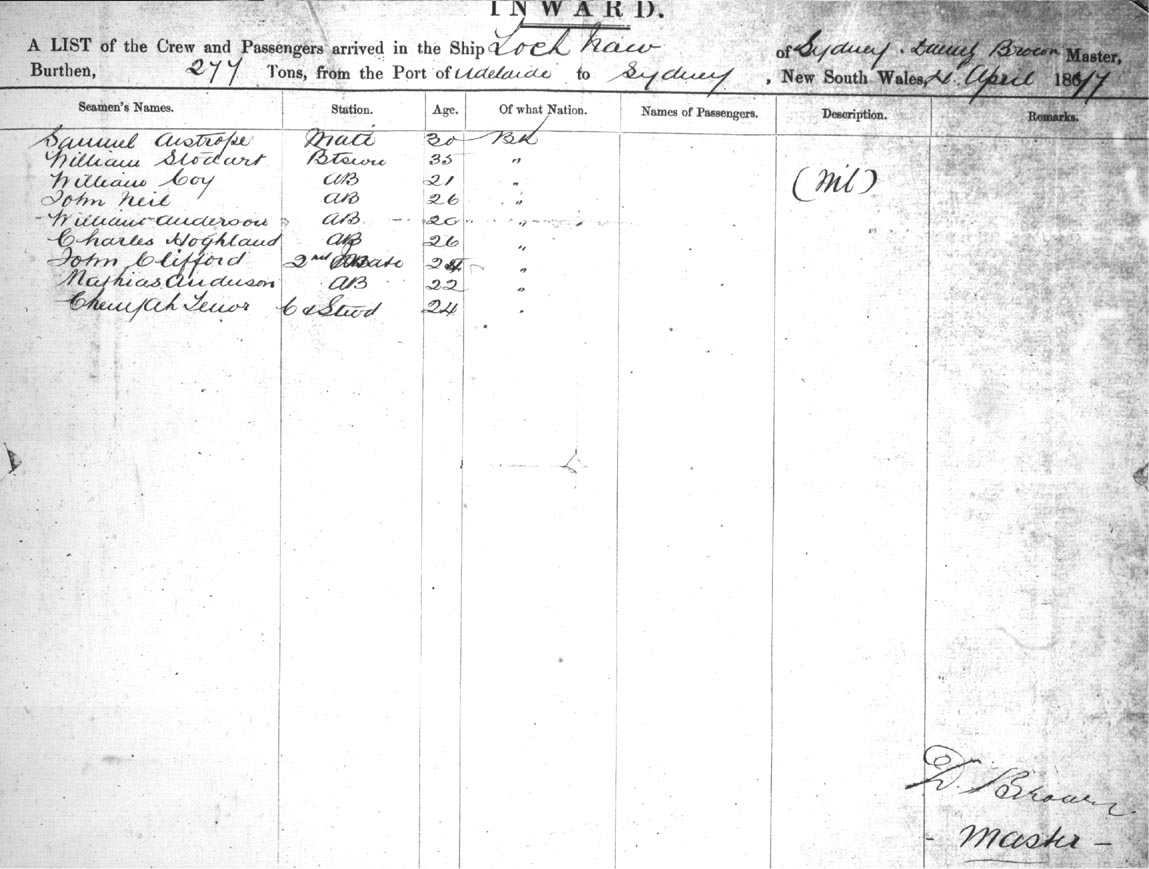 INWARD.
A LIST of the Crew and Passengers arrived in the Ship Loch of Sydney. Brown Master,
Burthen, 277 Tons, from the Port of Adelaide to Sydney, New South Wales, April 1867
Seamen's Names. Station. Age. Of what Nation. Names of Passengers. Description. Remarks.
Samuel Mate 30
William Stodart 35 "
William Coy AB 21 " (Nil)
John Neil AB 26 "
William Anderson AB 20 "
Charles Hoghland AB 26 "
John Clifford 2nd Mate "
Mathias Anderson AB 22 "
C & Stwd 24 "
D. Brown
- Master -